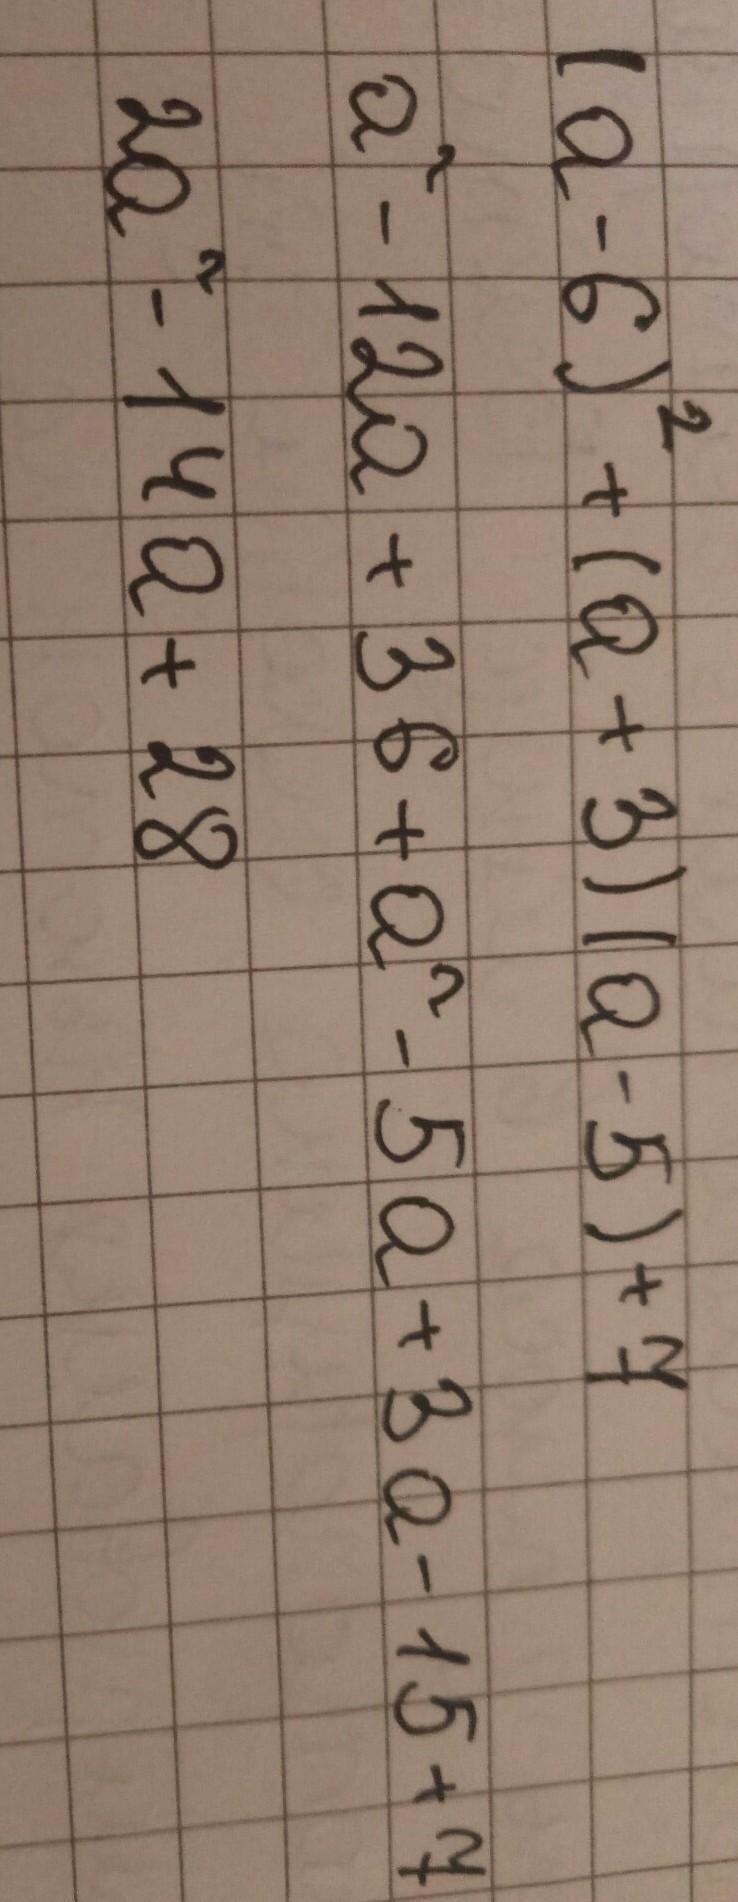 (a-6)² + (a+3)(a-5)+7
a² - 12a + 36 + a² - 5a + 3a - 15 + 7
2a² - 14a + 28